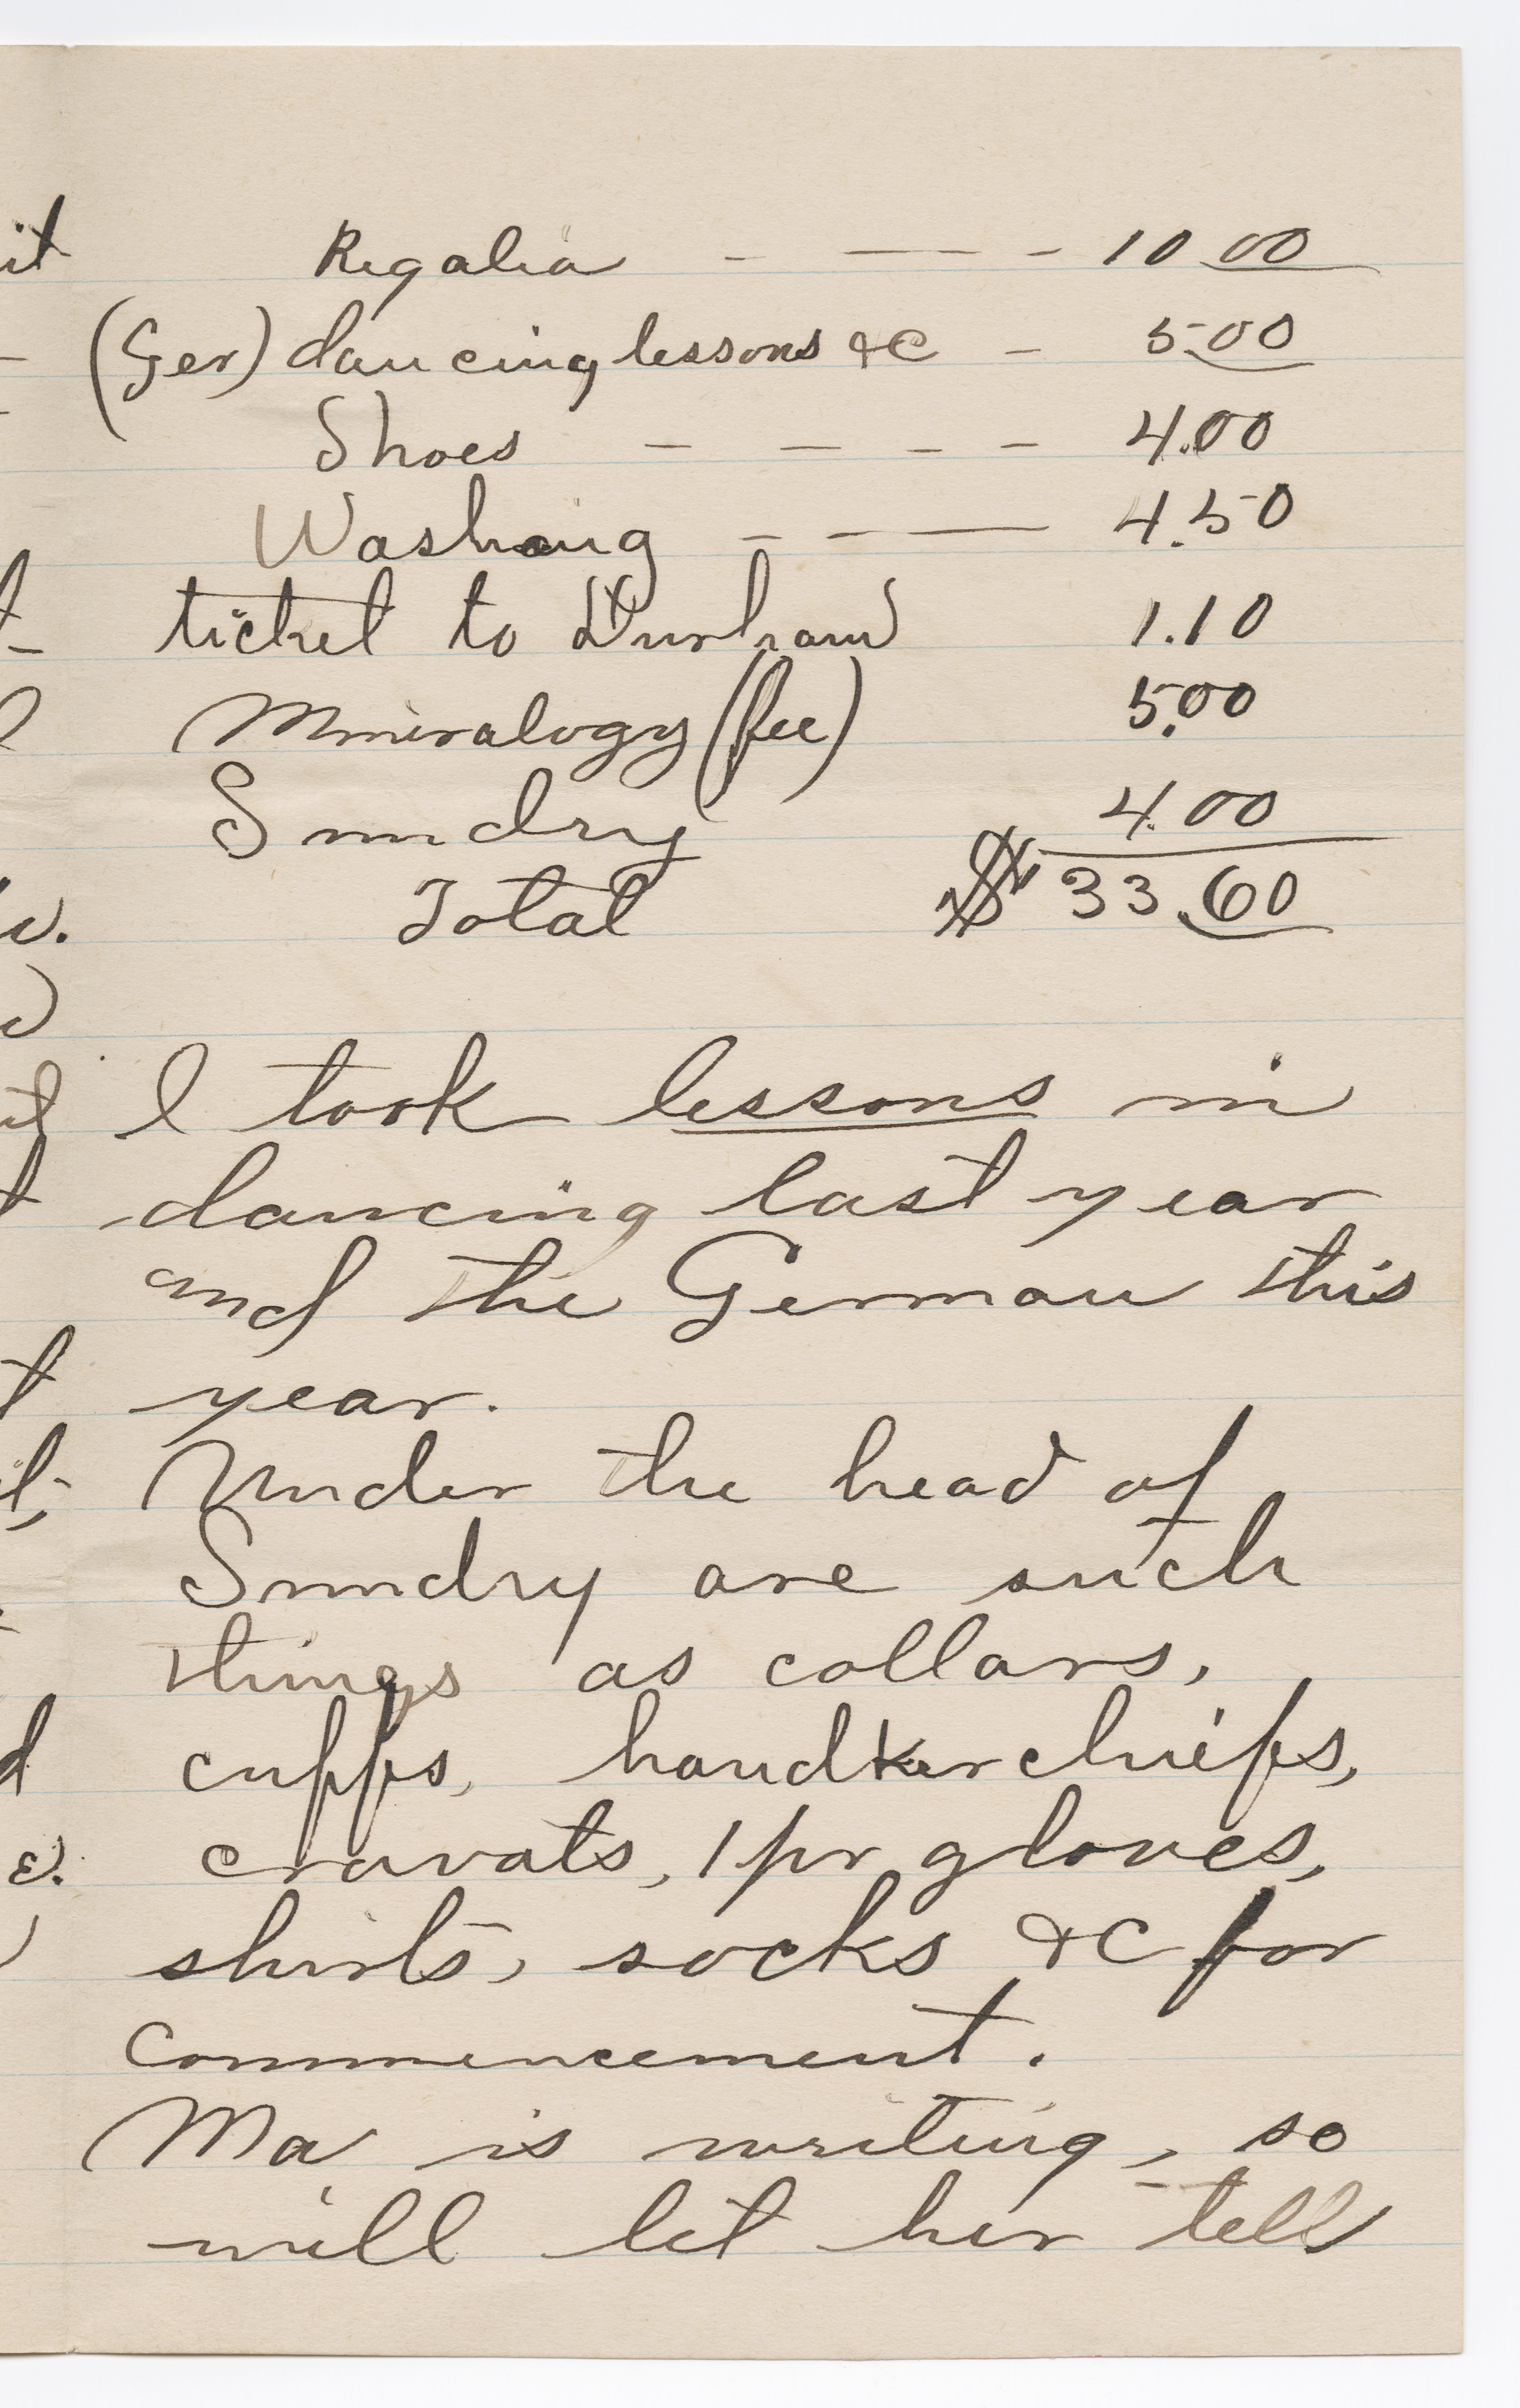 Regalia - — — - 10.00
(Ger) dancing lessons &c - 5.00
Shoes - - - - 4.00
Washing - - — 4.50
ticket to Durham 1.10
Mineralogy (fee) 5.00
Sundry 4.00
Total $33.60
I took lessons in
dancing last year
and the German this
year.
Under the head of
Sundry are such
things as collars,
cuffs, handkerchiefs,
cravats, 1 pr gloves,
shirts, socks &c for
commencement.
Ma is writing, so
will let her tell